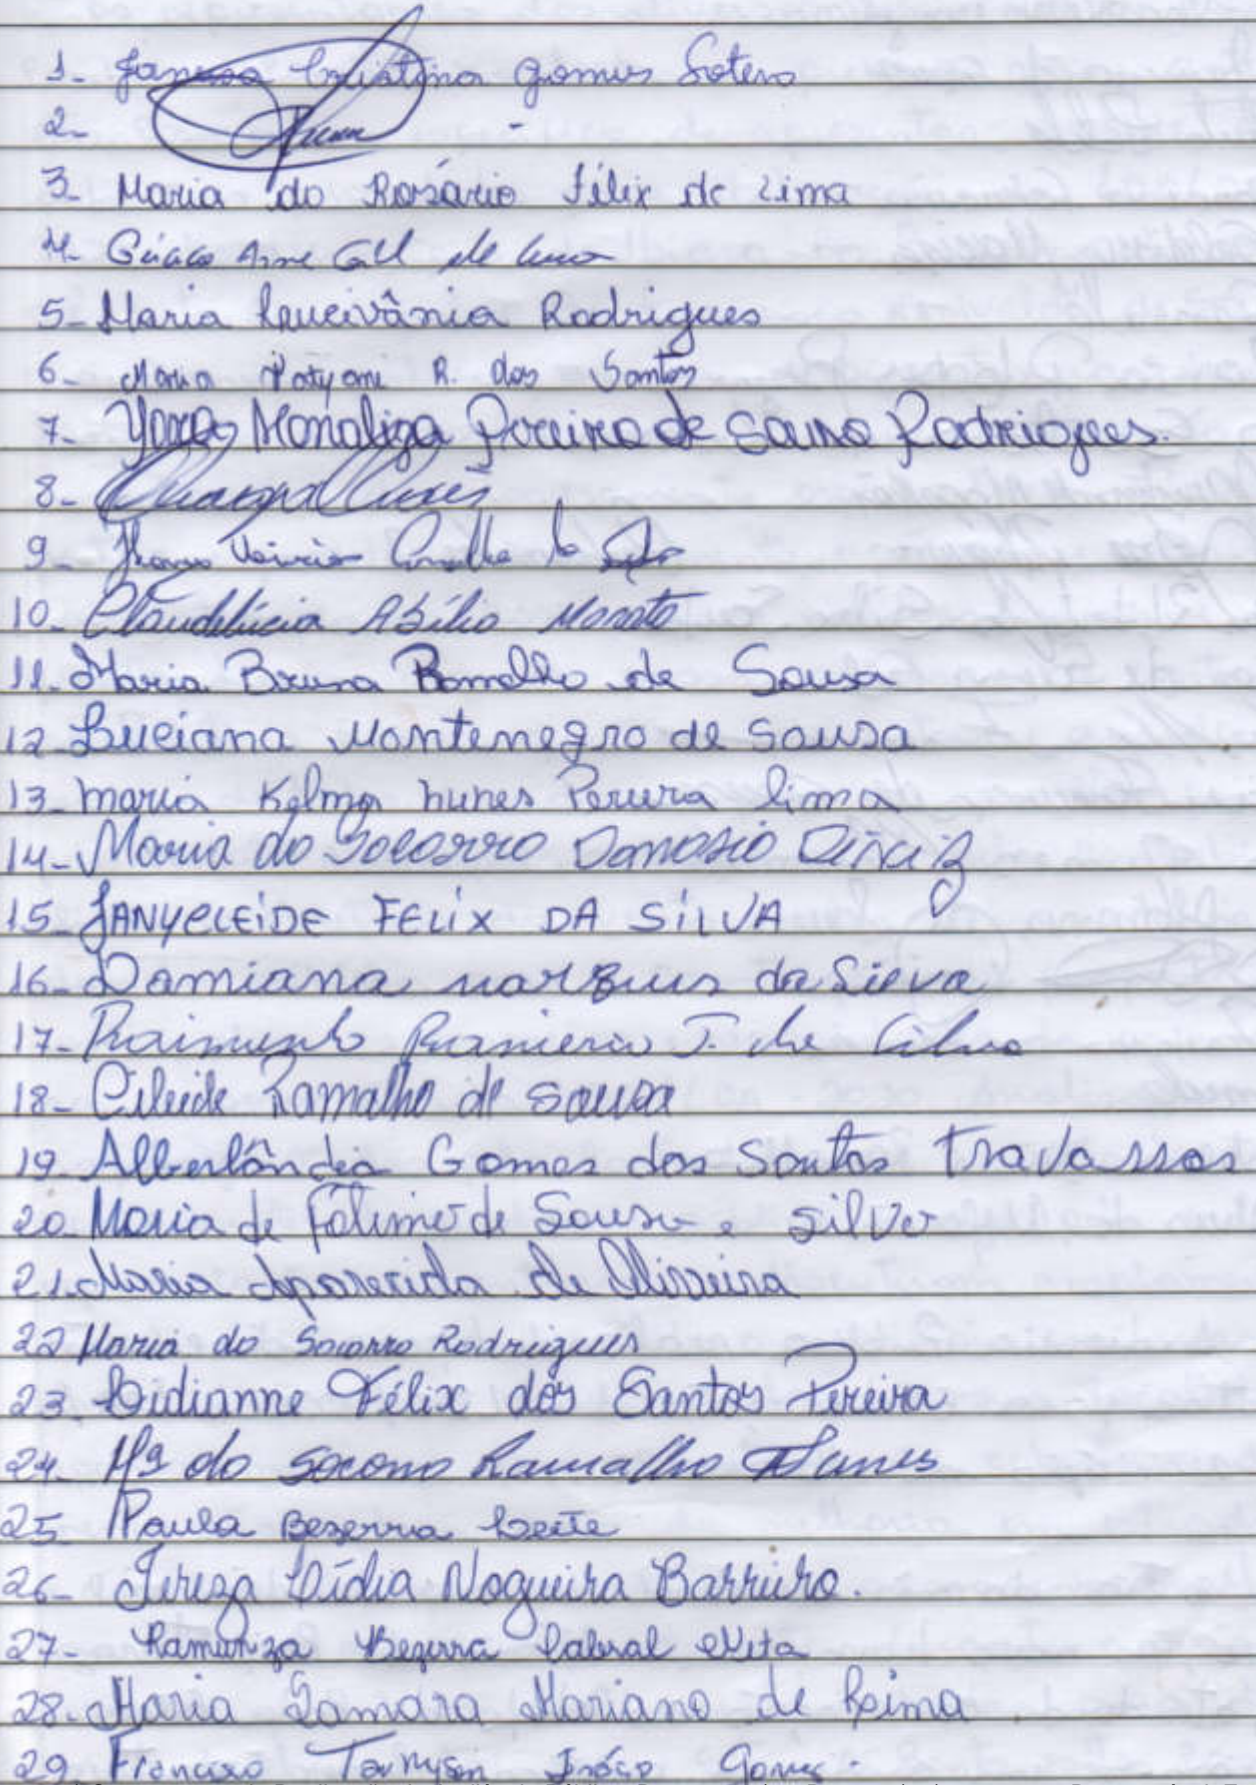 1- Cristina Gomes Sotero
2-
3- Maria do Rosário Félix de Lima
4-
5- Maria Lucivânia Rodrigues
6- Maria Tatyane R. dos Santos
7- Yara Monaliza Pereira de Sousa Rodrigues.
8-
9-
10- Claudilúcia Abílio
11- Maria Bruna Ramalho de Sousa
12- Luciana Montenegro de Sousa
13- Maria Kelma Nunes Pereira Lima
14- Maria do Socorro Damásio Diniz
15- JANYCLEIDE FELIX DA SILVA
16- Damiana Marques da Silva
17- Raimundo J. da Silva
18- Cileide Ramalho de Sousa
19- Alberlândia Gomes dos Santos Travassos
20- Maria de Fátima de Sousa e Silva
21- Maria Aparecida de Oliveira
22 Maria do Socorro Rodrigues
23- Lidianne Félix dos Santos Pereira
24- Mª do Socorro Ramalho
25- Paula Bezerra Leite
26- Tereza Lídia Nogueira Barreiro.
27- Bezerra Cabral Neta
28- Maria Samara Mariano de Lima
29 Francisco Gomes.